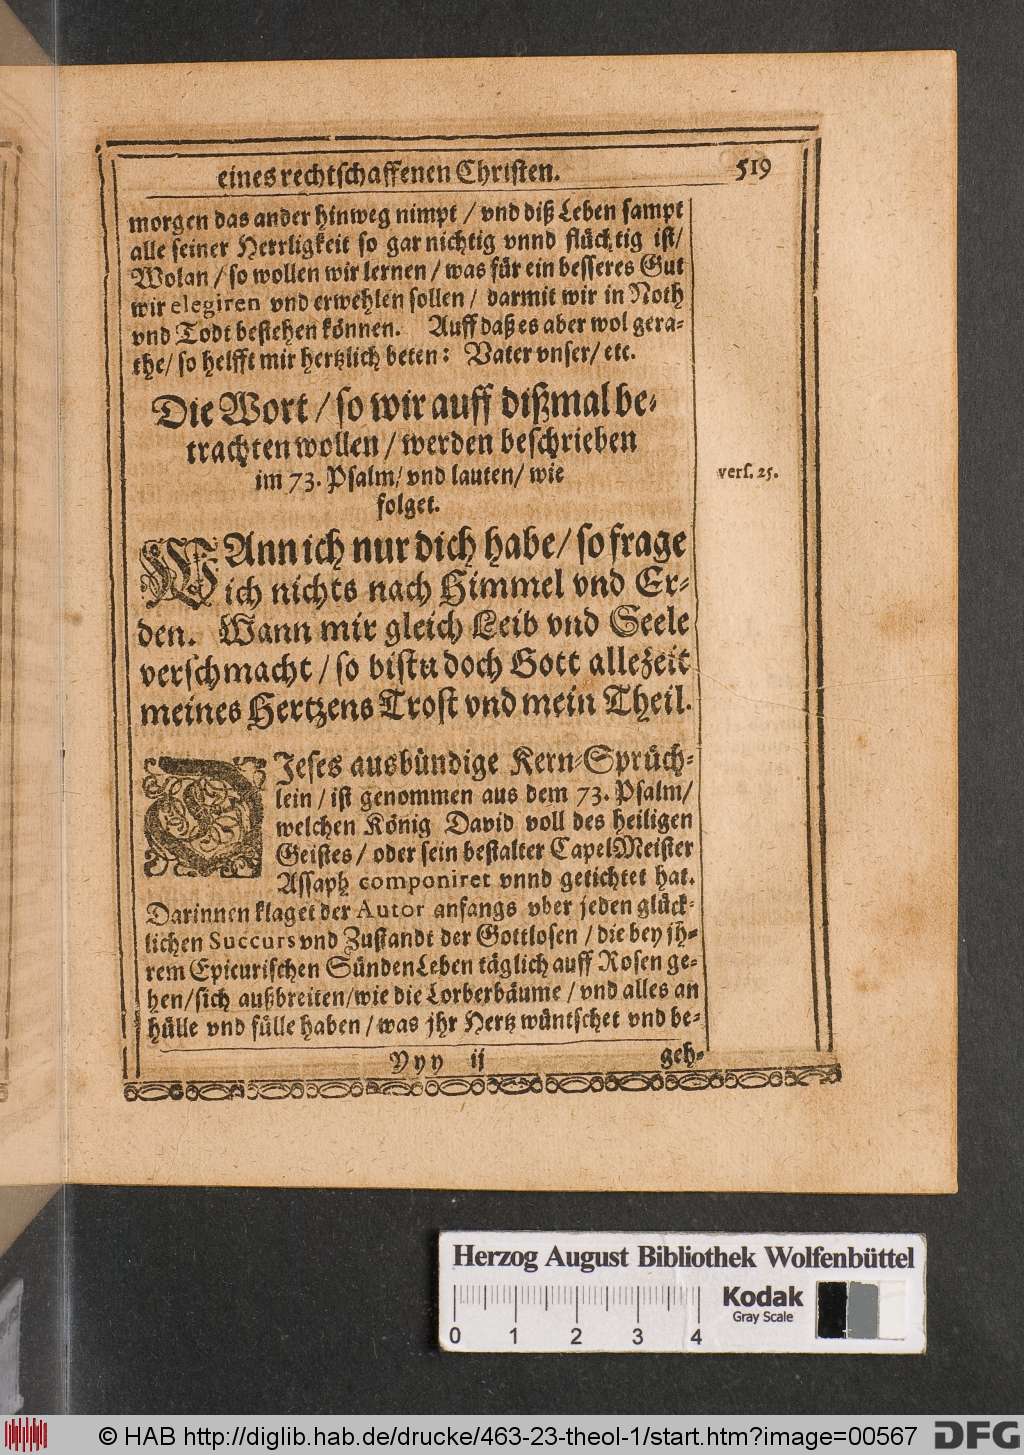 eines rechtschaffenen Christen. 519
morgen das ander hinweg nimpt / vnd diß Leben sampt
alle seiner Herrligkeit so gar nichtig vnnd flüchtig ist/
Wolan / so wollen wir lernen / was für ein besseres Gut
wir elegiren vnd erwehlen sollen / darmit wir in Noth
vnd Todt bestehen können. Auff daß es aber wol gera-
the/ so helfft mir hertzlich beten: Vater vnser/ etc.
Die Wort / so wir auff dißmal be-
trachten wollen / werden beschrieben
im 73. Psalm/ vnd lauten/ wie
vers. 25.
folget.
WAnn ich nur dich habe/ so frage
ich nichts nach Himmel vnd Er-
den. Wann mir gleich Leib vnd Seele
verschmacht / so bistu doch Gott allezeit
meines Hertzens Trost vnd mein Theil.
DIeses ausbündige Kern-Sprüch-
lein / ist genommen aus dem 73. Psalm/
welchen König David voll des heiligen
Geistes / oder sein bestalter CapelMeister
Assaph componiret vnnd getichtet hat.
Darinnen klaget der Autor anfangs vber jeden glück-
lichen Succurs vnd Zustandt der Gottlosen / die bey jh-
rem Epicurischen SündenLeben täglich auff Rosen ge-
hen/ sich außbreiten/ wie die Lorberbäume / vnd alles an
hülle vnd fülle haben / was jhr Hertz wüntschet vnd be-
Yyy ij geh-
Herzog August Bibliothek Wolfenbüttel
Kodak
Gray Scale
0 1 2 3 4
© HAB http://diglib.hab.de/drucke/463-23-theol-1/start.htm?image=00567
DFG